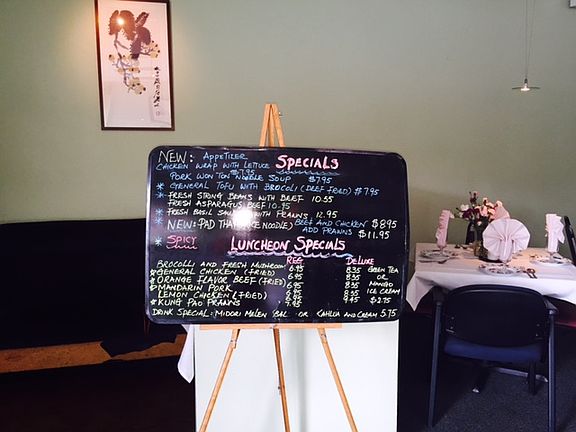 NEW: APPETIZER SPECIALS
CHICKEN WRAP WITH LETTUCE $7.95
PORK WON TON NOODLE SOUP $7.95
* GENERAL TOFU WITH BROCOLI (DEEP FRIED) $7.95
* FRESH STRING BEANS WITH BEEF 10.55
FRESH ASPARAGUS BEEF 10.95
* FRESH BASIL WITH PRAWNS 12.95
NEW: PAD THAI (RICE NOODLE) BEEF AND CHICKEN $8.95
ADD PRAWNS $11.95
* SPICY LUNCHEON SPECIALS
REG DELUXE
BROCOLLI AND FRESH MUSHROOM 6.95 8.35 GREEN TEA
* GENERAL CHICKEN (FRIED) 6.95 8.35 OR
* ORANGE FLAVOR BEEF (FRIED) 6.95 8.35 MANGO
* MANDARIN PORK 6.95 8.35 ICE CREAM
LEMON CHICKEN (FRIED) 6.95 8.35 $2.75
* KUNG PAO PRAWNS 7.95 9.45
DRINK SPECIAL: MIDORI MELON BALL OR KAHLUA AND CREAM 5.75